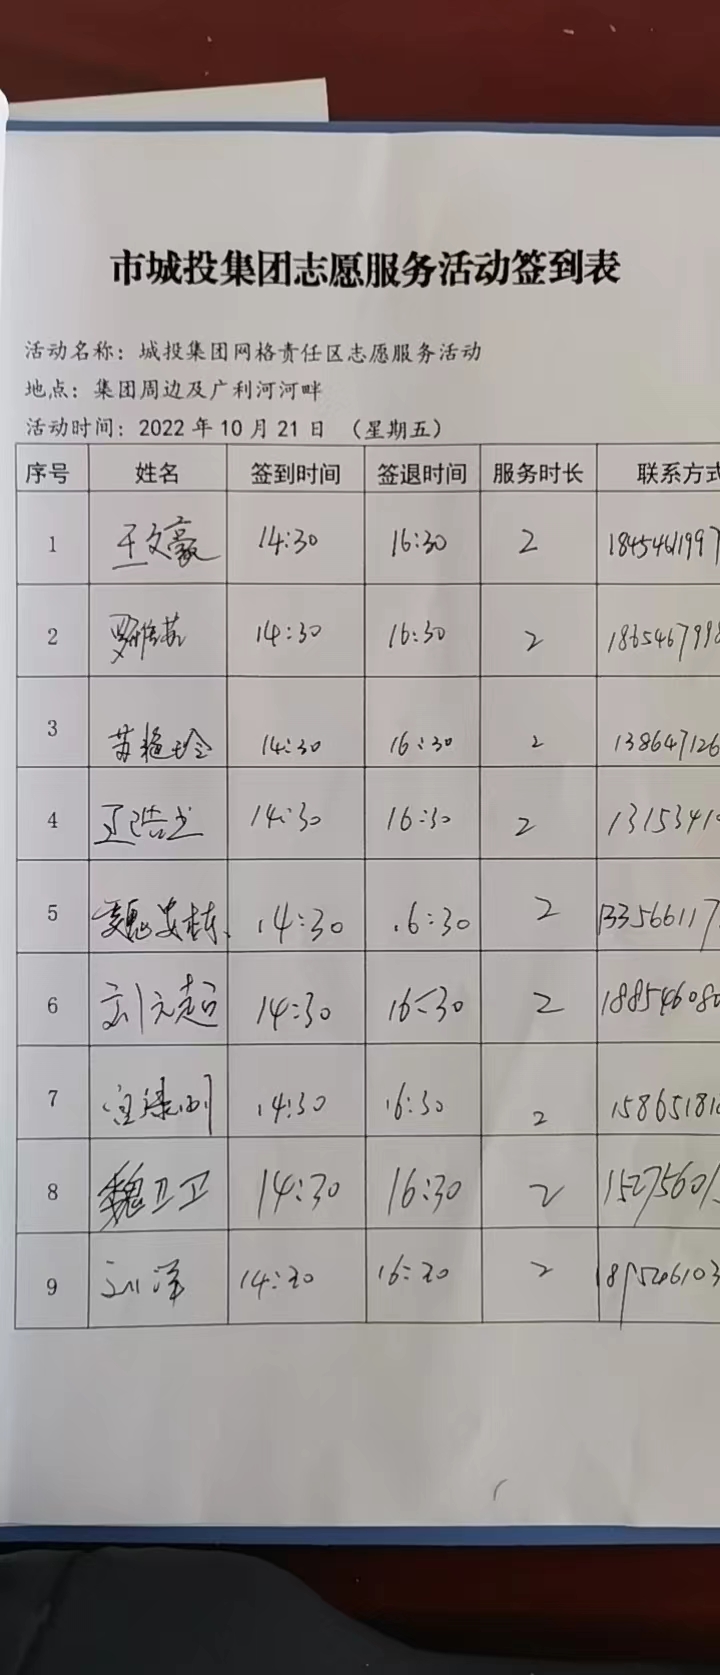 市城投集团志愿服务活动签到表
活动名称：城投集团网格责任区志愿服务活动
地点：集团周边及广利河河畔
活动时间：2022年10月21日 （星期五）
序号 姓名 签到时间 签退时间 服务时长 联系方式
1 王文豪 14:30 16:30 2
2 14:30 16:30 2
3 苏艳玲 14:30 16:30 2 138647126
4 14:30 16:30 2 1315341
5 魏安栋 14:30 16:30 2 133566117
6 刘元超 14:30 16:30 2 188546080
7 14:30 16:30 2 158651818
8 魏卫卫 14:30 16:30 2 15275601
9 刘洋 14:30 16:30 2